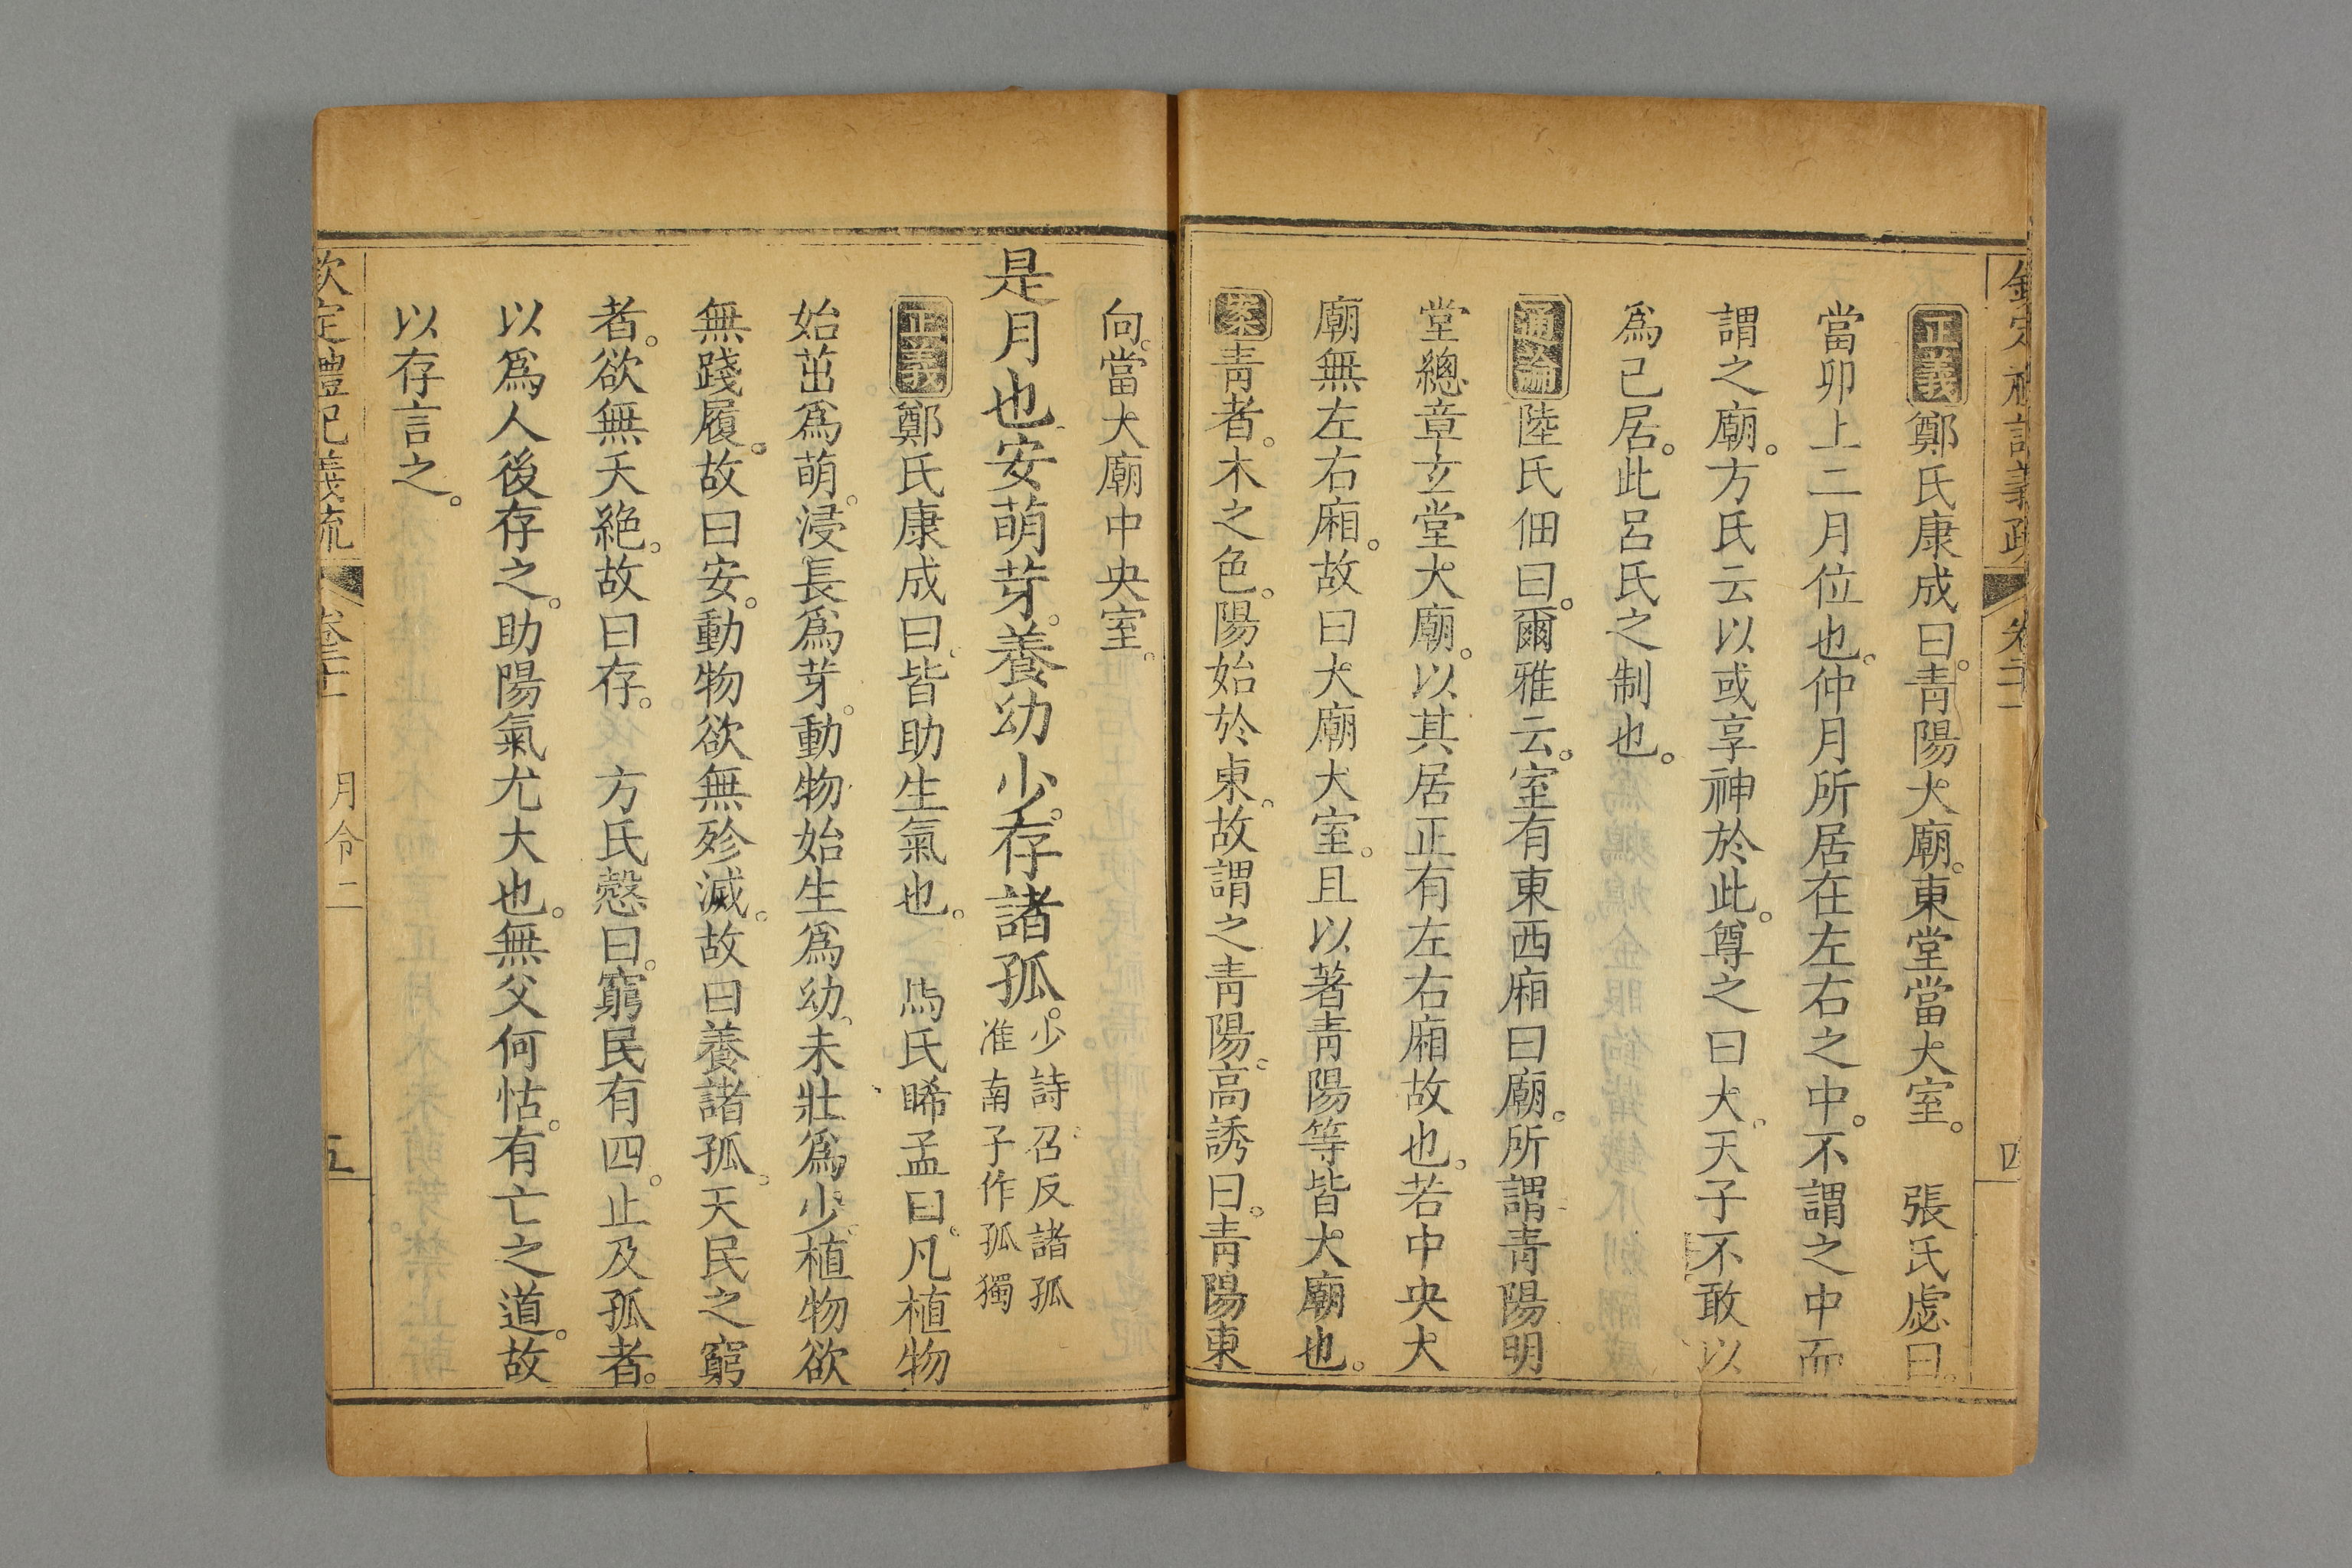 欽定禮記義疏 卷二十一 四
正義鄭氏康成曰。靑陽大廟。東堂當大室。 張氏虙曰。
當卯上二月位也。仲月所居在左右之中。不謂之中而
謂之廟。方氏云以或享神於此。尊之曰大。天子不敢以
爲已居。此呂氏之制也。
通論陸氏佃曰。爾雅云。室有東西廂曰廟。所謂靑陽明
堂總章玄堂大廟。以其居正有左右廂故也。若中央大
廟無左右廂。故曰大廟大室。且以著靑陽等皆大廟也。
案靑者。木之色。陽始於東。故謂之靑陽。高誘曰。靑陽東
向。當大廟中央室。
是月也安萌芽。養幼少。存諸孤。少詩召反諸孤
准南子作孤獨
正義鄭氏康成曰。皆助生氣也。 馬氏晞孟曰。凡植物
始茁爲萌。浸長爲芽。動物始生爲幼。未壯爲少。植物欲
無踐履。故曰安。動物欲無殄滅。故曰養諸孤。天民之窮
者。欲無夭絶。故曰存。 方氏慤曰。窮民有四。止及孤者。
以爲人後存之。助陽氣尤大也。無父何怙。有亡之道。故
以存言之。
欽定禮記義疏 卷二十一 月令二 五